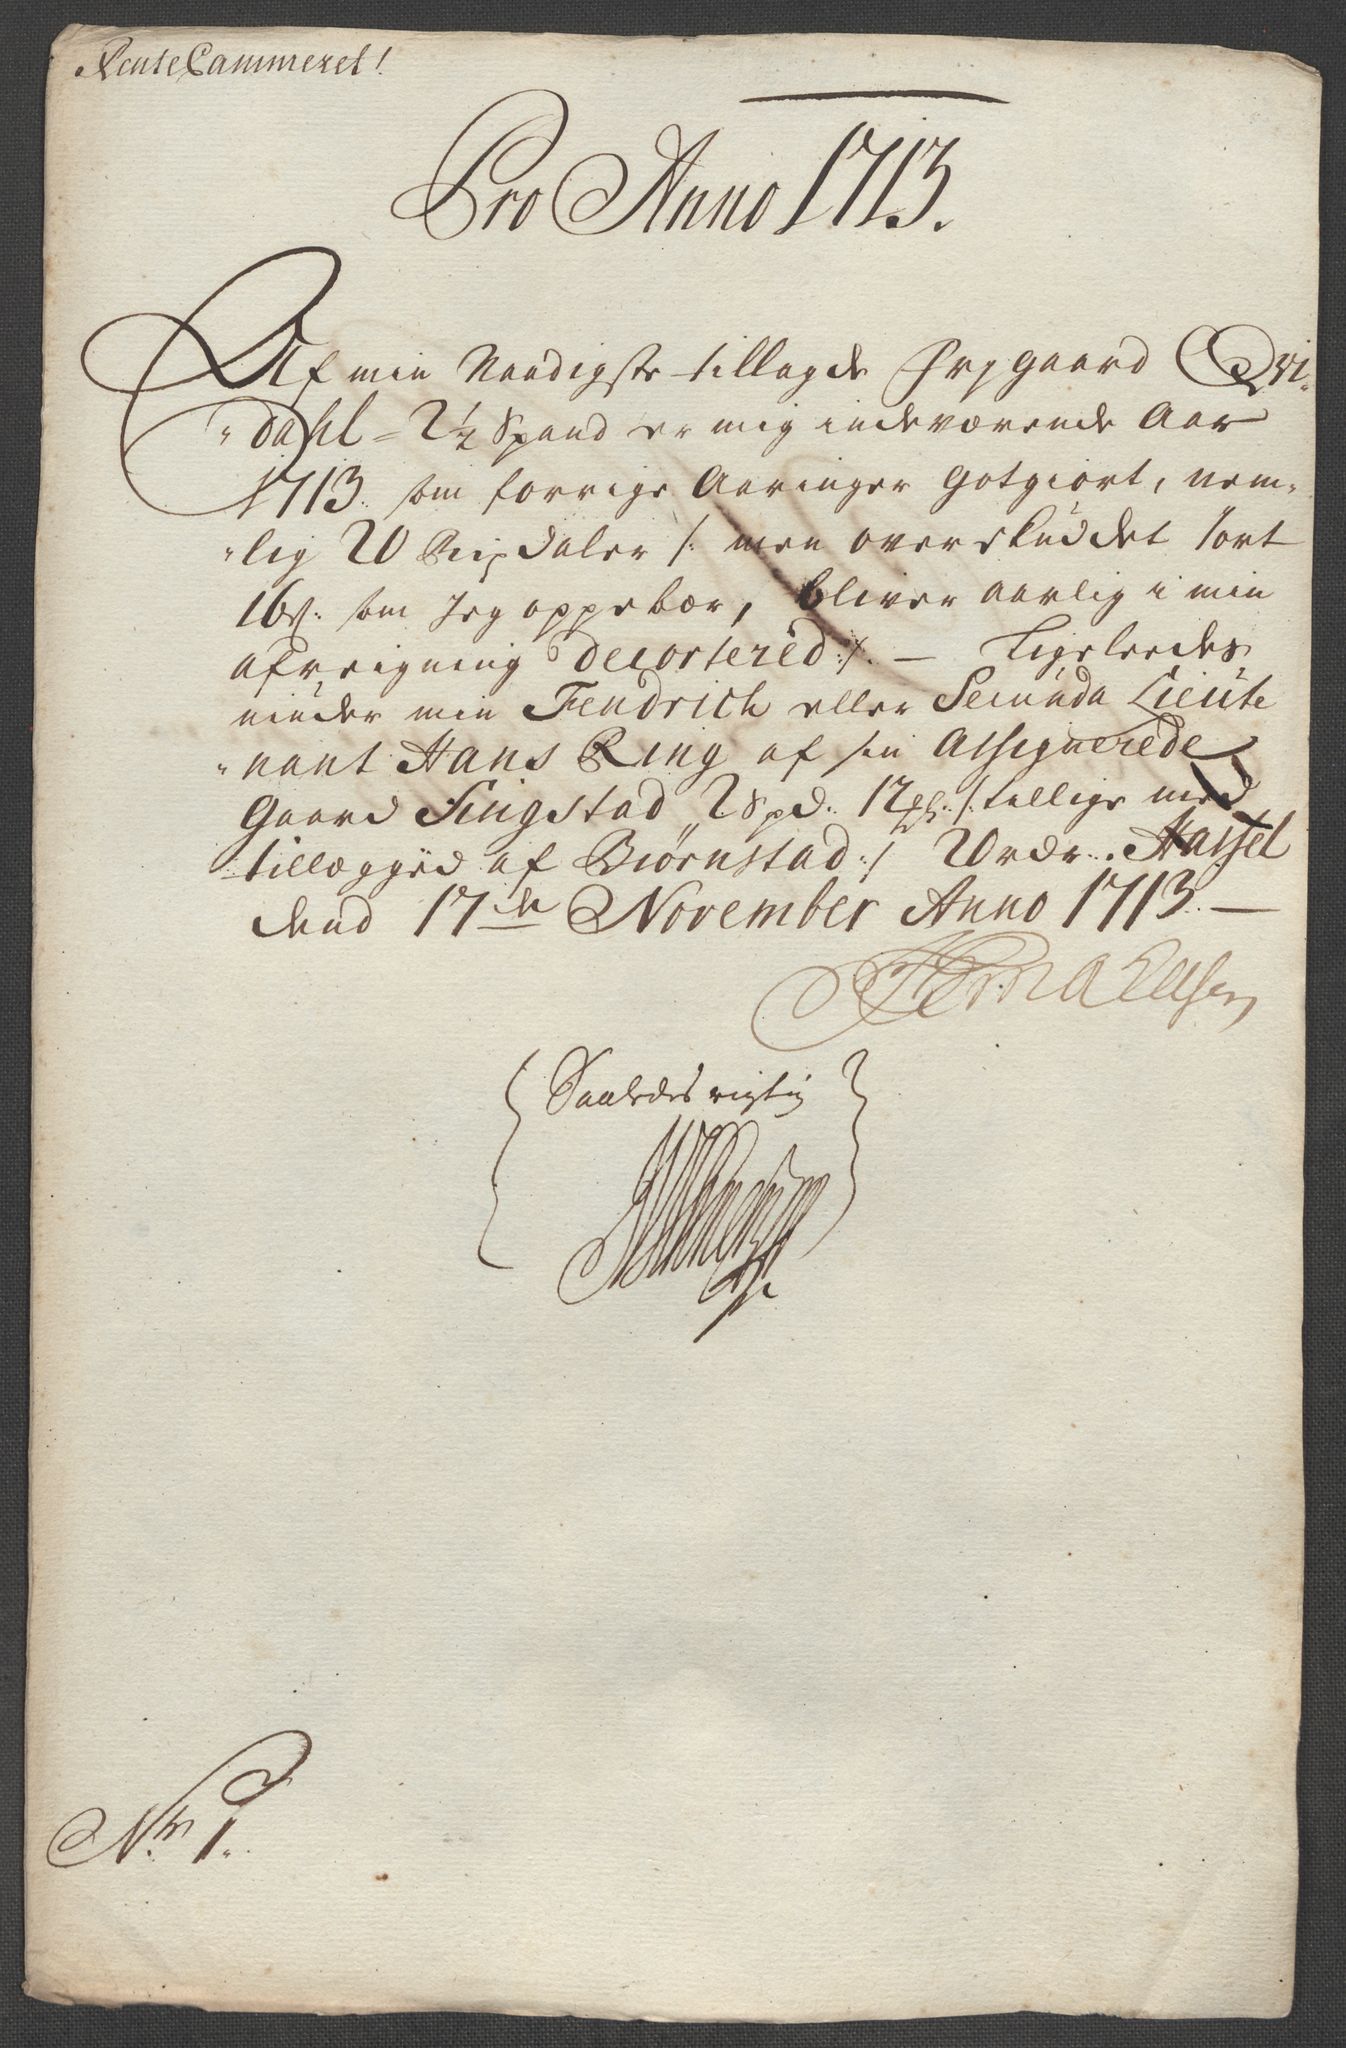 RenteCammeret!
Pro Anno 1713.
Af min Naadigste tillagde Frj gaard Qvi„
„dahl = 2½ Spand er mig indeværende Aar
1713. som forrige Aaringer Gotgiort, nem„
„lig 20 Rixdaler /: men overskuddet 1 ort
16 s: som Jeg oppebær, bliver aarlig i min
afreigning decortered :/. — Ligeleedes
niuder min Fendrich eller Secunda Lieute
„nant Hans Ring af sin Assignerede
Gaard Fingstad 2 Spd: 12 /: tillige med
tillægged af Biørnstad :/ 20 rdr. Hassel
dend 17de November Anno 1713. —
Saaledes rigtig
No. 1.